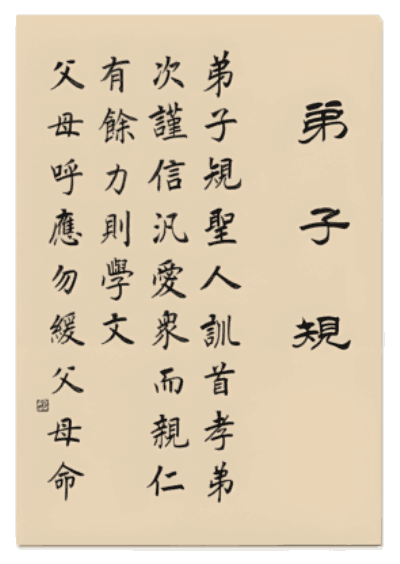 弟子規
弟子規聖人訓首孝弟
次謹信汎愛衆而親仁
有餘力則學文
父母呼應勿緩父母命